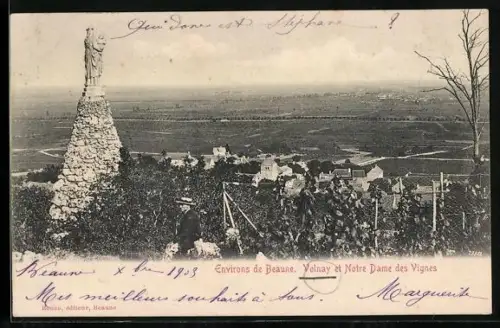 Qui donc est Stéphane ?
Environs de Beaune. Volnay et Notre Dame des Vignes
Beaune Xbre 1903
Mes meilleurs souhaits à tous. Marguerite
éditeur, Beaune